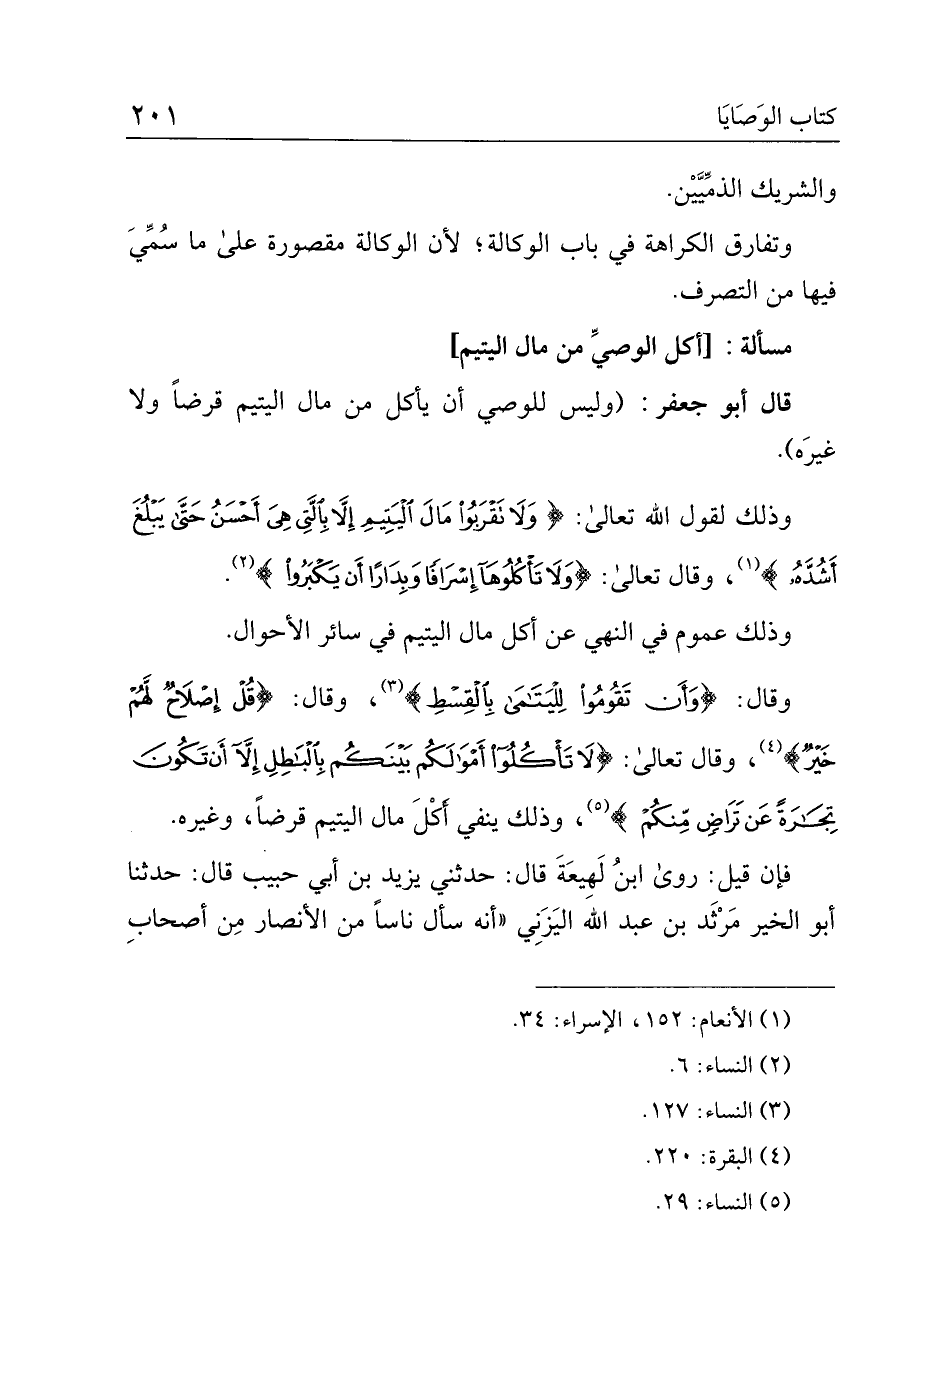 كتاب الوَصَايَا ٢٠١
والشريك الذمِّيَّيْن.
وتفارق الكراهة في باب الوكالة؛ لأن الوكالة مقصورة علىٰ ما سُمِّيَ
فيها من التصرف.
مسألة : [أكل الوصيِّ من مال اليتيم]
قال أبو جعفر : (وليس للوصي أن يأكل من مال اليتيم قرضاً ولا
غيرَه).
وذلك لقول الله تعالىٰ: ﴿ وَلَا نَقْرَبُوا۟ مَالَ ٱلْيَتِيمِ إِلَّا بِٱلَّتِى هِىَ أَحْسَنُ حَتَّىٰ يَبْلُغَ
أَشُدَّهُۥ ﴾(١)، وقال تعالىٰ: ﴿وَلَا تَأْكُلُوهَآ إِسْرَافًا وَبِدَارًا أَن يَكْبَرُوا۟ ﴾(٢).
وذلك عموم في النهي عن أكل مال اليتيم في سائر الأحوال.
وقال: ﴿وَأَن تَقُومُوا۟ لِلْيَتَـٰمَىٰ بِٱلْقِسْطِ﴾(٣)، وقال: ﴿قُلْ إِصْلَاحٌ لَّهُمْ
خَيْرٌ﴾(٤)، وقال تعالىٰ: ﴿لَا تَأْكُلُوٓا۟ أَمْوَٰلَكُم بَيْنَكُم بِٱلْبَـٰطِلِ إِلَّآ أَن تَكُونَ
تِجَـٰرَةً عَن تَرَاضٍ مِّنكُمْ ﴾(٥)، وذلك ينفي أَكْلَ مال اليتيم قرضاً، وغيره.
فإن قيل: روىٰ ابنُ لَهِيعَةَ قال: حدثني يزيد بن أبي حبيب قال: حدثنا
أبو الخير مَرْثَد بن عبد الله اليَزَني «أنه سأل ناساً من الأنصار مِن أصحابِ
(١) الأنعام: ١٥٢، الإسراء: ٣٤.
(٢) النساء: ٦.
(٣) النساء: ١٢٧.
(٤) البقرة: ٢٢٠.
(٥) النساء: ٢٩.